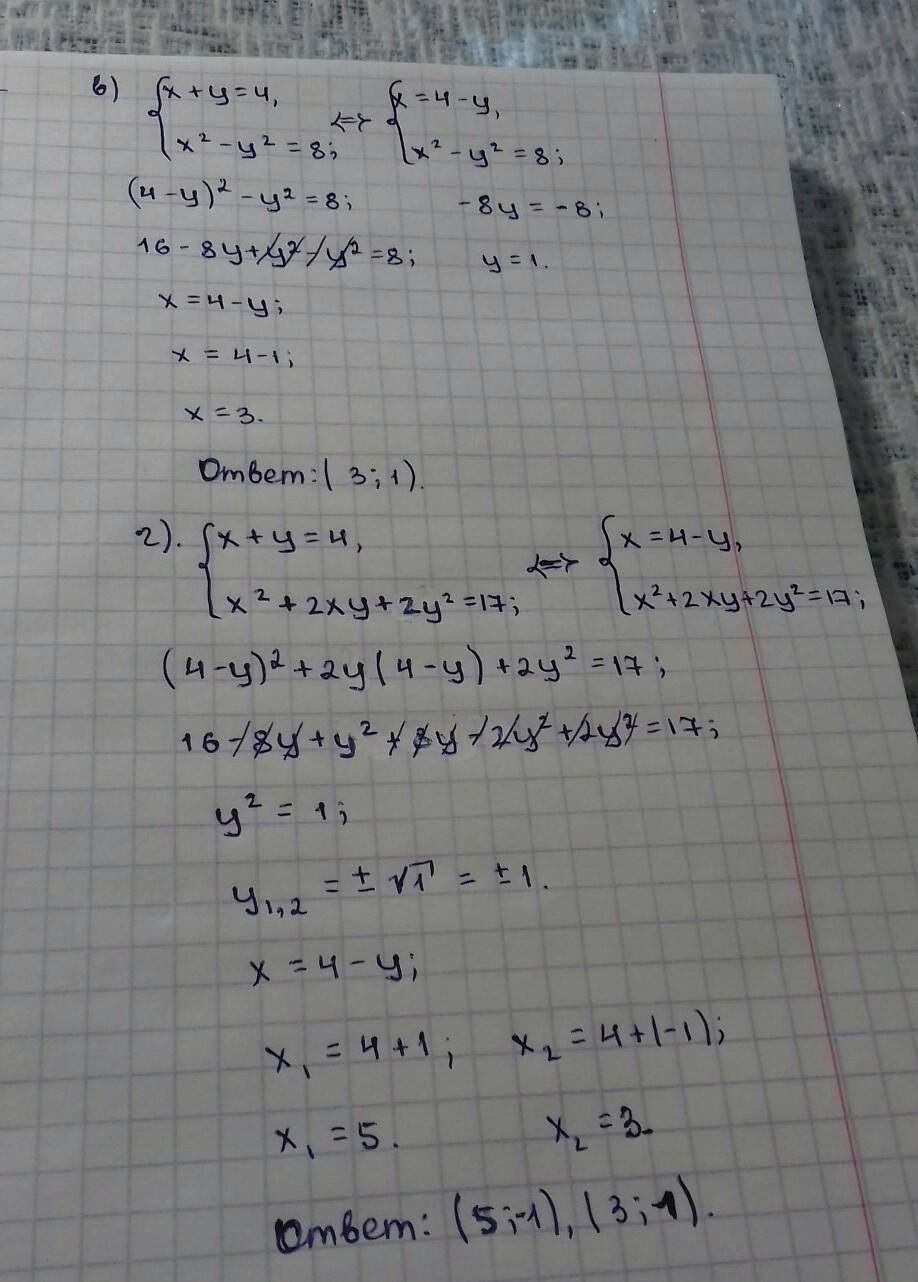 в) { x + y = 4, x² - y² = 8; <=> { x = 4 - y, x² - y² = 8;
(4 - y)² - y² = 8; -8y = -8;
16 - 8y + y² - y² = 8; y = 1.
x = 4 - y;
x = 4 - 1;
x = 3.
Ответ: (3; 1).
г). { x + y = 4, x² + 2xy + 2y² = 17; <=> { x = 4 - y, x² + 2xy + 2y² = 17;
(4 - y)² + 2y(4 - y) + 2y² = 17;
16 - 8y + y² + 8y - 2y² + 2y² = 17;
y² = 1;
y₁,₂ = ± √1 = ± 1.
x = 4 - y;
x₁ = 4 + 1; x₂ = 4 + (-1);
x₁ = 5. x₂ = 3.
Ответ: (5; -1), (3; 1).